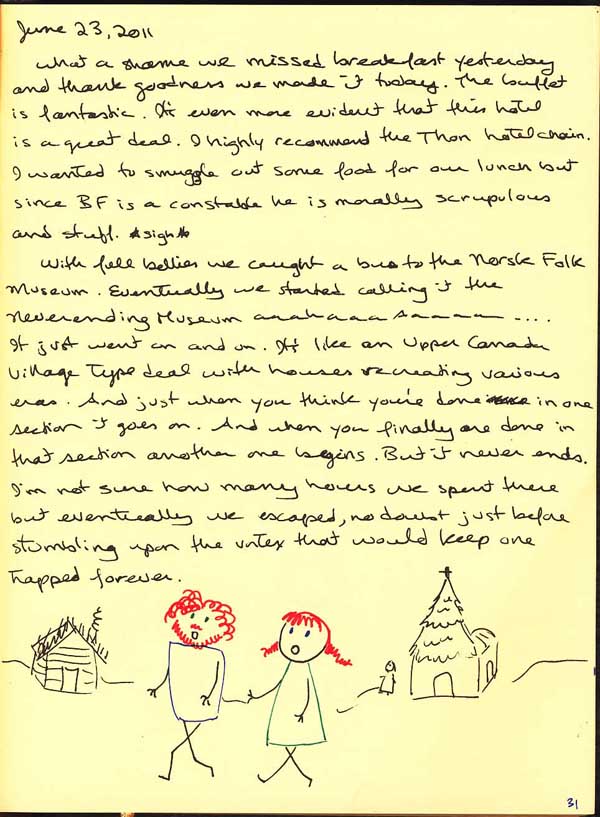 June 23, 2011
What a shame we missed breakfast yesterday
and thank goodness we made it today. The buffet
is fantastic. It's even more evident that this hotel
is a great deal. I highly recommend the Thon hotel chain.
I wanted to smuggle out some food for our lunch but
since BF is a constable he is morally scrupulous
and stuff. *sigh*
With full bellies we caught a bus to the Norsk Folk
Museum. Eventually we started calling it the
Neverending Museum aaahaaaaaaaaa....
It just went on and on. It's like an Upper Canada
Village Type deal with houses recreating various
eras. And just when you think you're done in one
section it goes on. And when you finally are done in
that section another one begins. But it never ends.
I'm not sure how many hours we spent there
but eventually we escaped, no doubt just before
stumbling upon the vortex that would keep one
trapped forever.
31